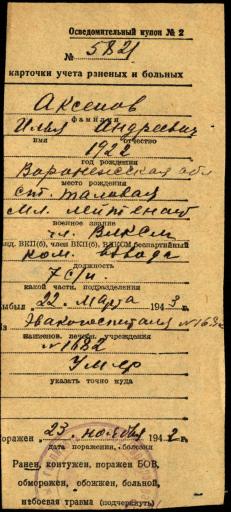 Осведомительный купон № 2
№ 5821
карточки учета раненых и больных
Аксенов
фамилия
Илья Андреевич
имя отчество
1922
год рождения
Воронежская обл
место рождения
ст. Таловая
Мл. лейтенант
военное звание
чл. ВЛКСМ
нд. ВКП(б), член ВКП(б), ВЛКСМ беспартийный
ком. взвода
должность
7 с/п
какой части, подразделения
ыбыл 22 Марта 1943 г.
Из Эвакогоспиталя №1682
наименов. лечебн. учреждения
№1682
Умер
указать точно куда
Поражен 23 ноября 1942 г.
дата поражения, болезни
Ранен, контужен, поражен БОВ,
обморожен, обожжен, больной,
небоевая травма (подчеркнуть)